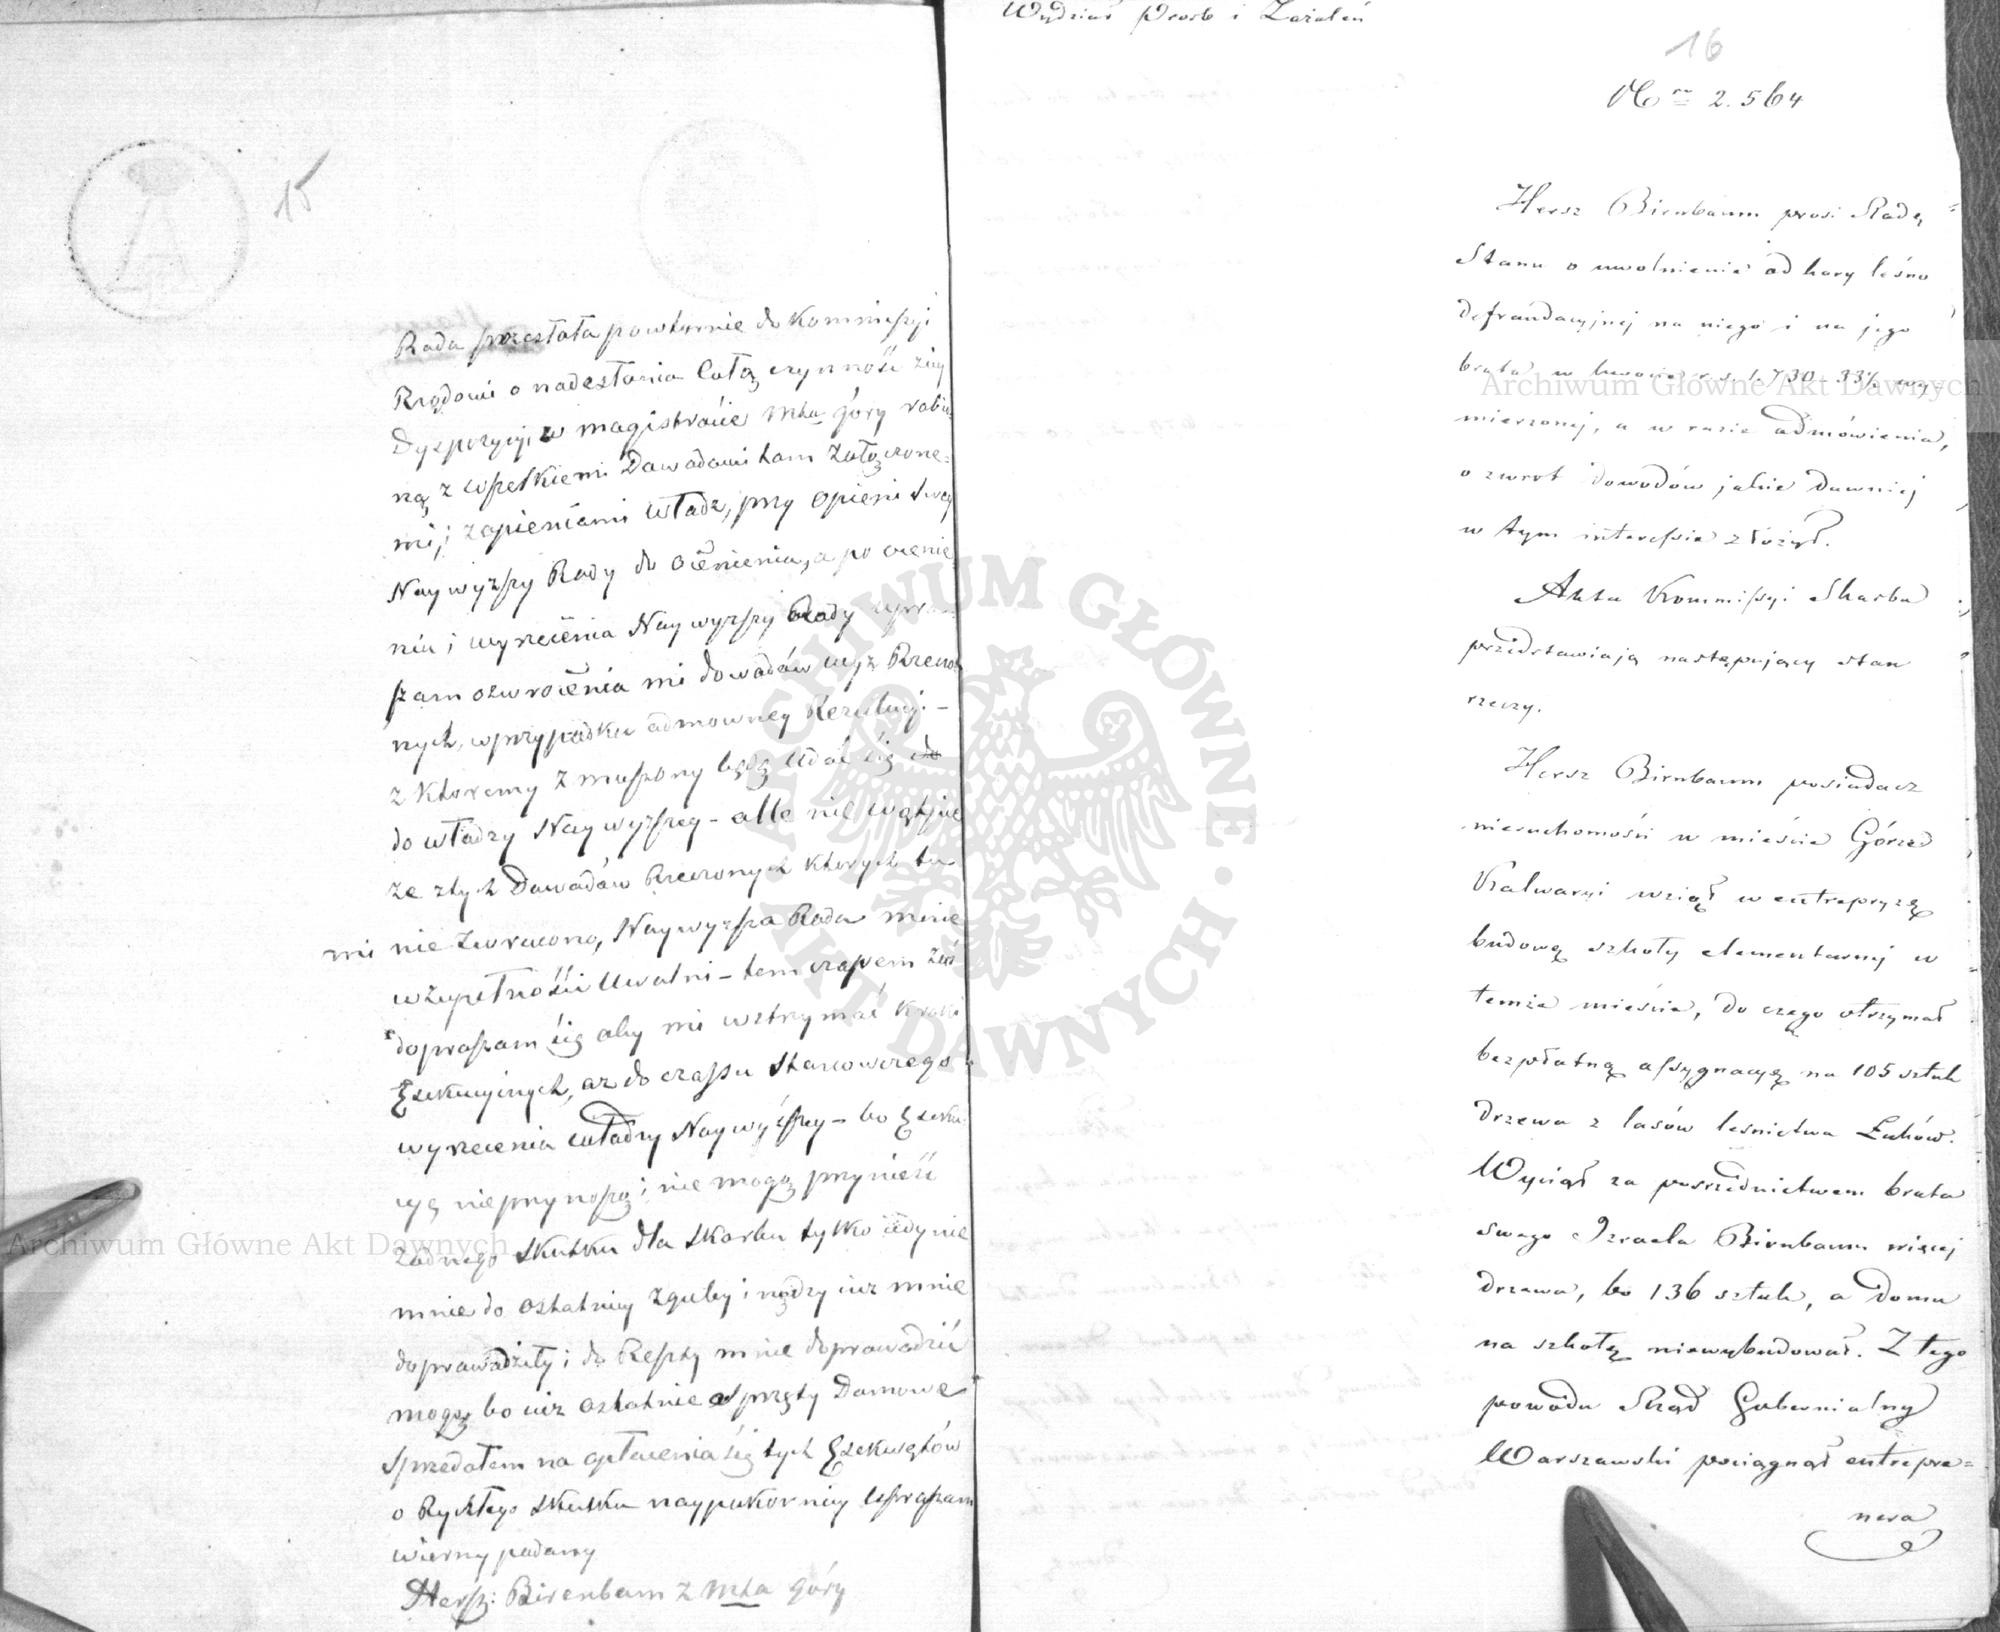 15
Rada przestała powturnie do Kommissyi
Rządowi o nadesłania Całą czynność
Dyspozycyi w magistraćie Mta Góry robio-
ną z wszelkiemi Dawodami tam załączone-
mi; zapieniami władz, przy opieni swey
Naywyższy Rady do ocinienia, a po
niu i wyrzecinia Naywyższy Rady upra-
szam ozwrocinia mi dowodów wyż Rzeczo-
nych, w przypadku admowney Rezulucyi -
z Ktoremy zmuszony będę udać śię do
do władzy Naywyższey - alle nie wątpie
że ztych Dawodów Rzeczonych których tu
mi nie zwrucono, Naywyższa Rada mnie
w zupełnośći Uwalni - tem czasem żaś
dopraszam śię aby mi wztrzymać Kroki
Exekucyinych, aż do czasu stanowczego
wyrzecenia władzy Naywyższey - bo Exeku-
cyę nieprzynoszą i nie mogą przynieść
żadnego skutku dla skarbu tylko iedynie
mnie do ostatniey zguby i nędzy iuz mnie
doprawadziły i do Reszty mnie doprowadzić
mogą bo iuz ostatnie Sprzęty Domowe
Sprzedałem na opłacenia śię tych Exekuętów
o Rychłego skutku naypukorniey Upraszam
wierny podany
Hersz: Birenbam z Mta Góry
Wydział Prośb i Zażaleń
16
Nro 2.564
Hersz Birnbaum prosi Radę
Stanu o uwolnienie od kary leśno
defraudacyjnej na niego i na jego
brata w kwocie r.s. 1.730 33½ wy-
mierzonej, a w razie odmówienia,
o zwrot dowodów jakie dawniej
w tym interessie złożył.
Akta Kommissyi Skarbu
przedstawiają następujący stan
rzeczy.
Hersz Birnbaum posiadacz
nieruchomości w mieście Górze
Kalwaryi wziął w entrepryzę
budowę szkoły elementarnej w
temże mieście, do czego otrzymał
bezpłatną assygnacyę na 105 sztuk
drzewa z lasów leśnictwa Łuków.
Wyciął za pośrednictwem brata
swego Izraela Birnbaum więcej
drzewa, bo 136 sztuk, a domu
na szkołę niewybudował. Z tego
powodu Rząd Gubernialny
Warszawski pociągnął entrepre-
nera
Archiwum Główne Akt Dawnych
Archiwum Główne Akt Dawnych
ARCHIWUM GŁÓWNE AKT DAWNYCH